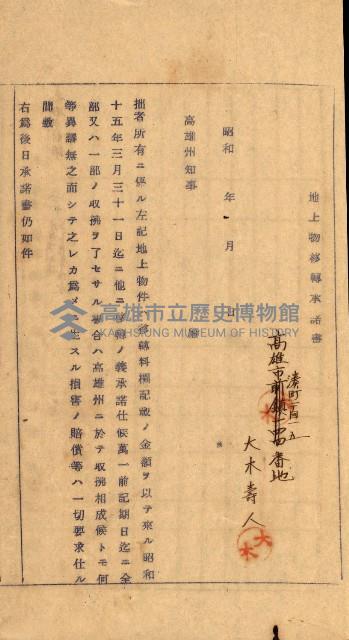 地上物移轉承諾書
湊町一ノ一五
高雄市前鎮 番地
大木壽人
大木
昭和 年 月 日
高雄州知事 殿
拙者所有ニ係ル左記地上物件 移轉料欄記載ノ金額ヲ以テ來ル昭和
十五年三月三十一日迄ニ他ニ移轉ノ義承諾仕候萬一前記期日迄ニ全
部又ハ一部ノ收拂ヲ了セサル場合ハ高雄州ニ於テ收拂相成候トモ何
等異議無之而シテ之レカ爲メ生スル損害ノ賠償等ハ一切要求仕ル
間敷
右爲後日承諾書仍如件
高雄市立歷史博物館
KAOHSIUNG MUSEUM OF HISTORY